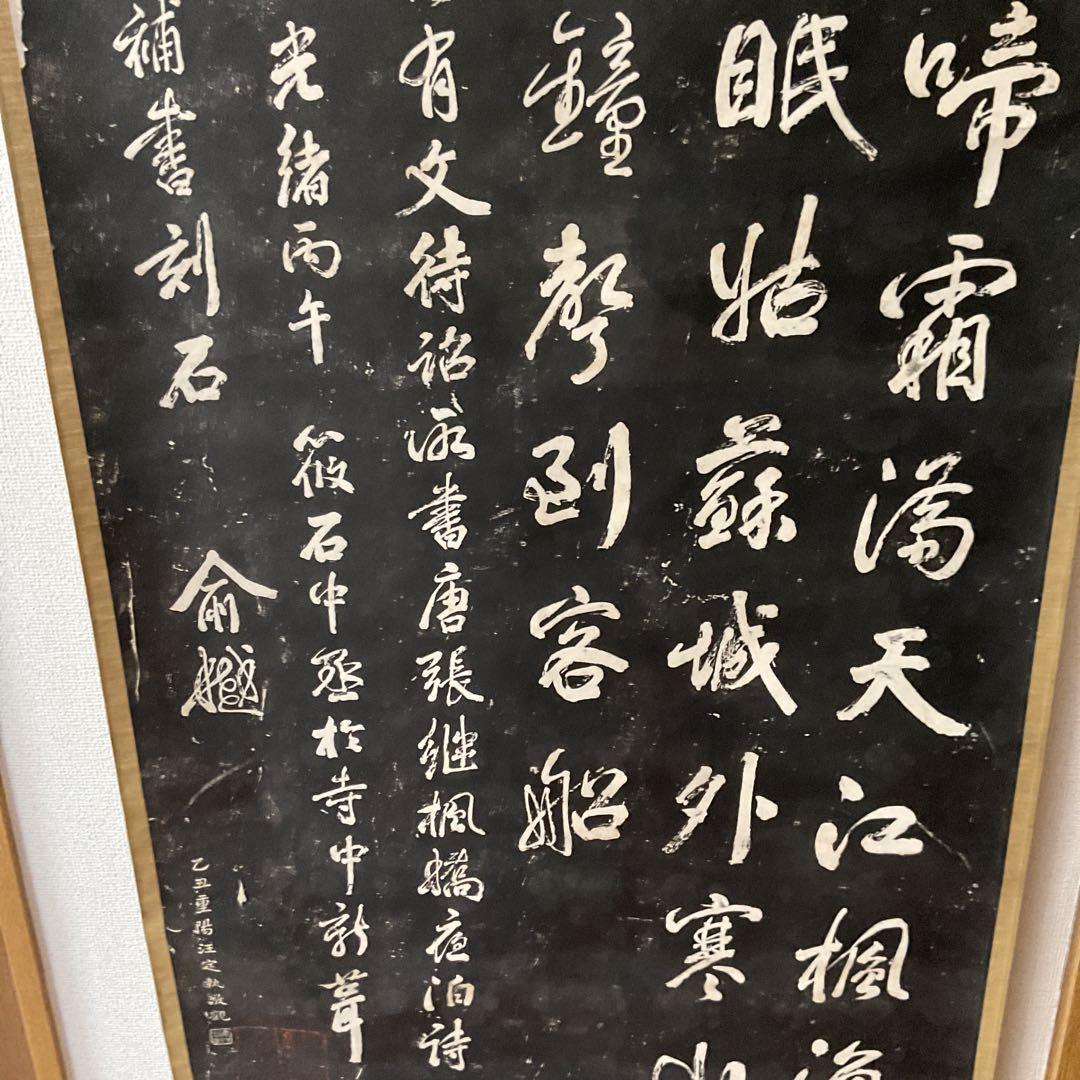 啼霜滿天江楓漁
眠姑蘇城外寒山
鐘聲到客船
有文待詔所書唐張繼楓橋夜泊詩
光緒丙午筱石中丞於寺中新葺
補書刻石俞樾
乙丑重陽汪定執敬觀